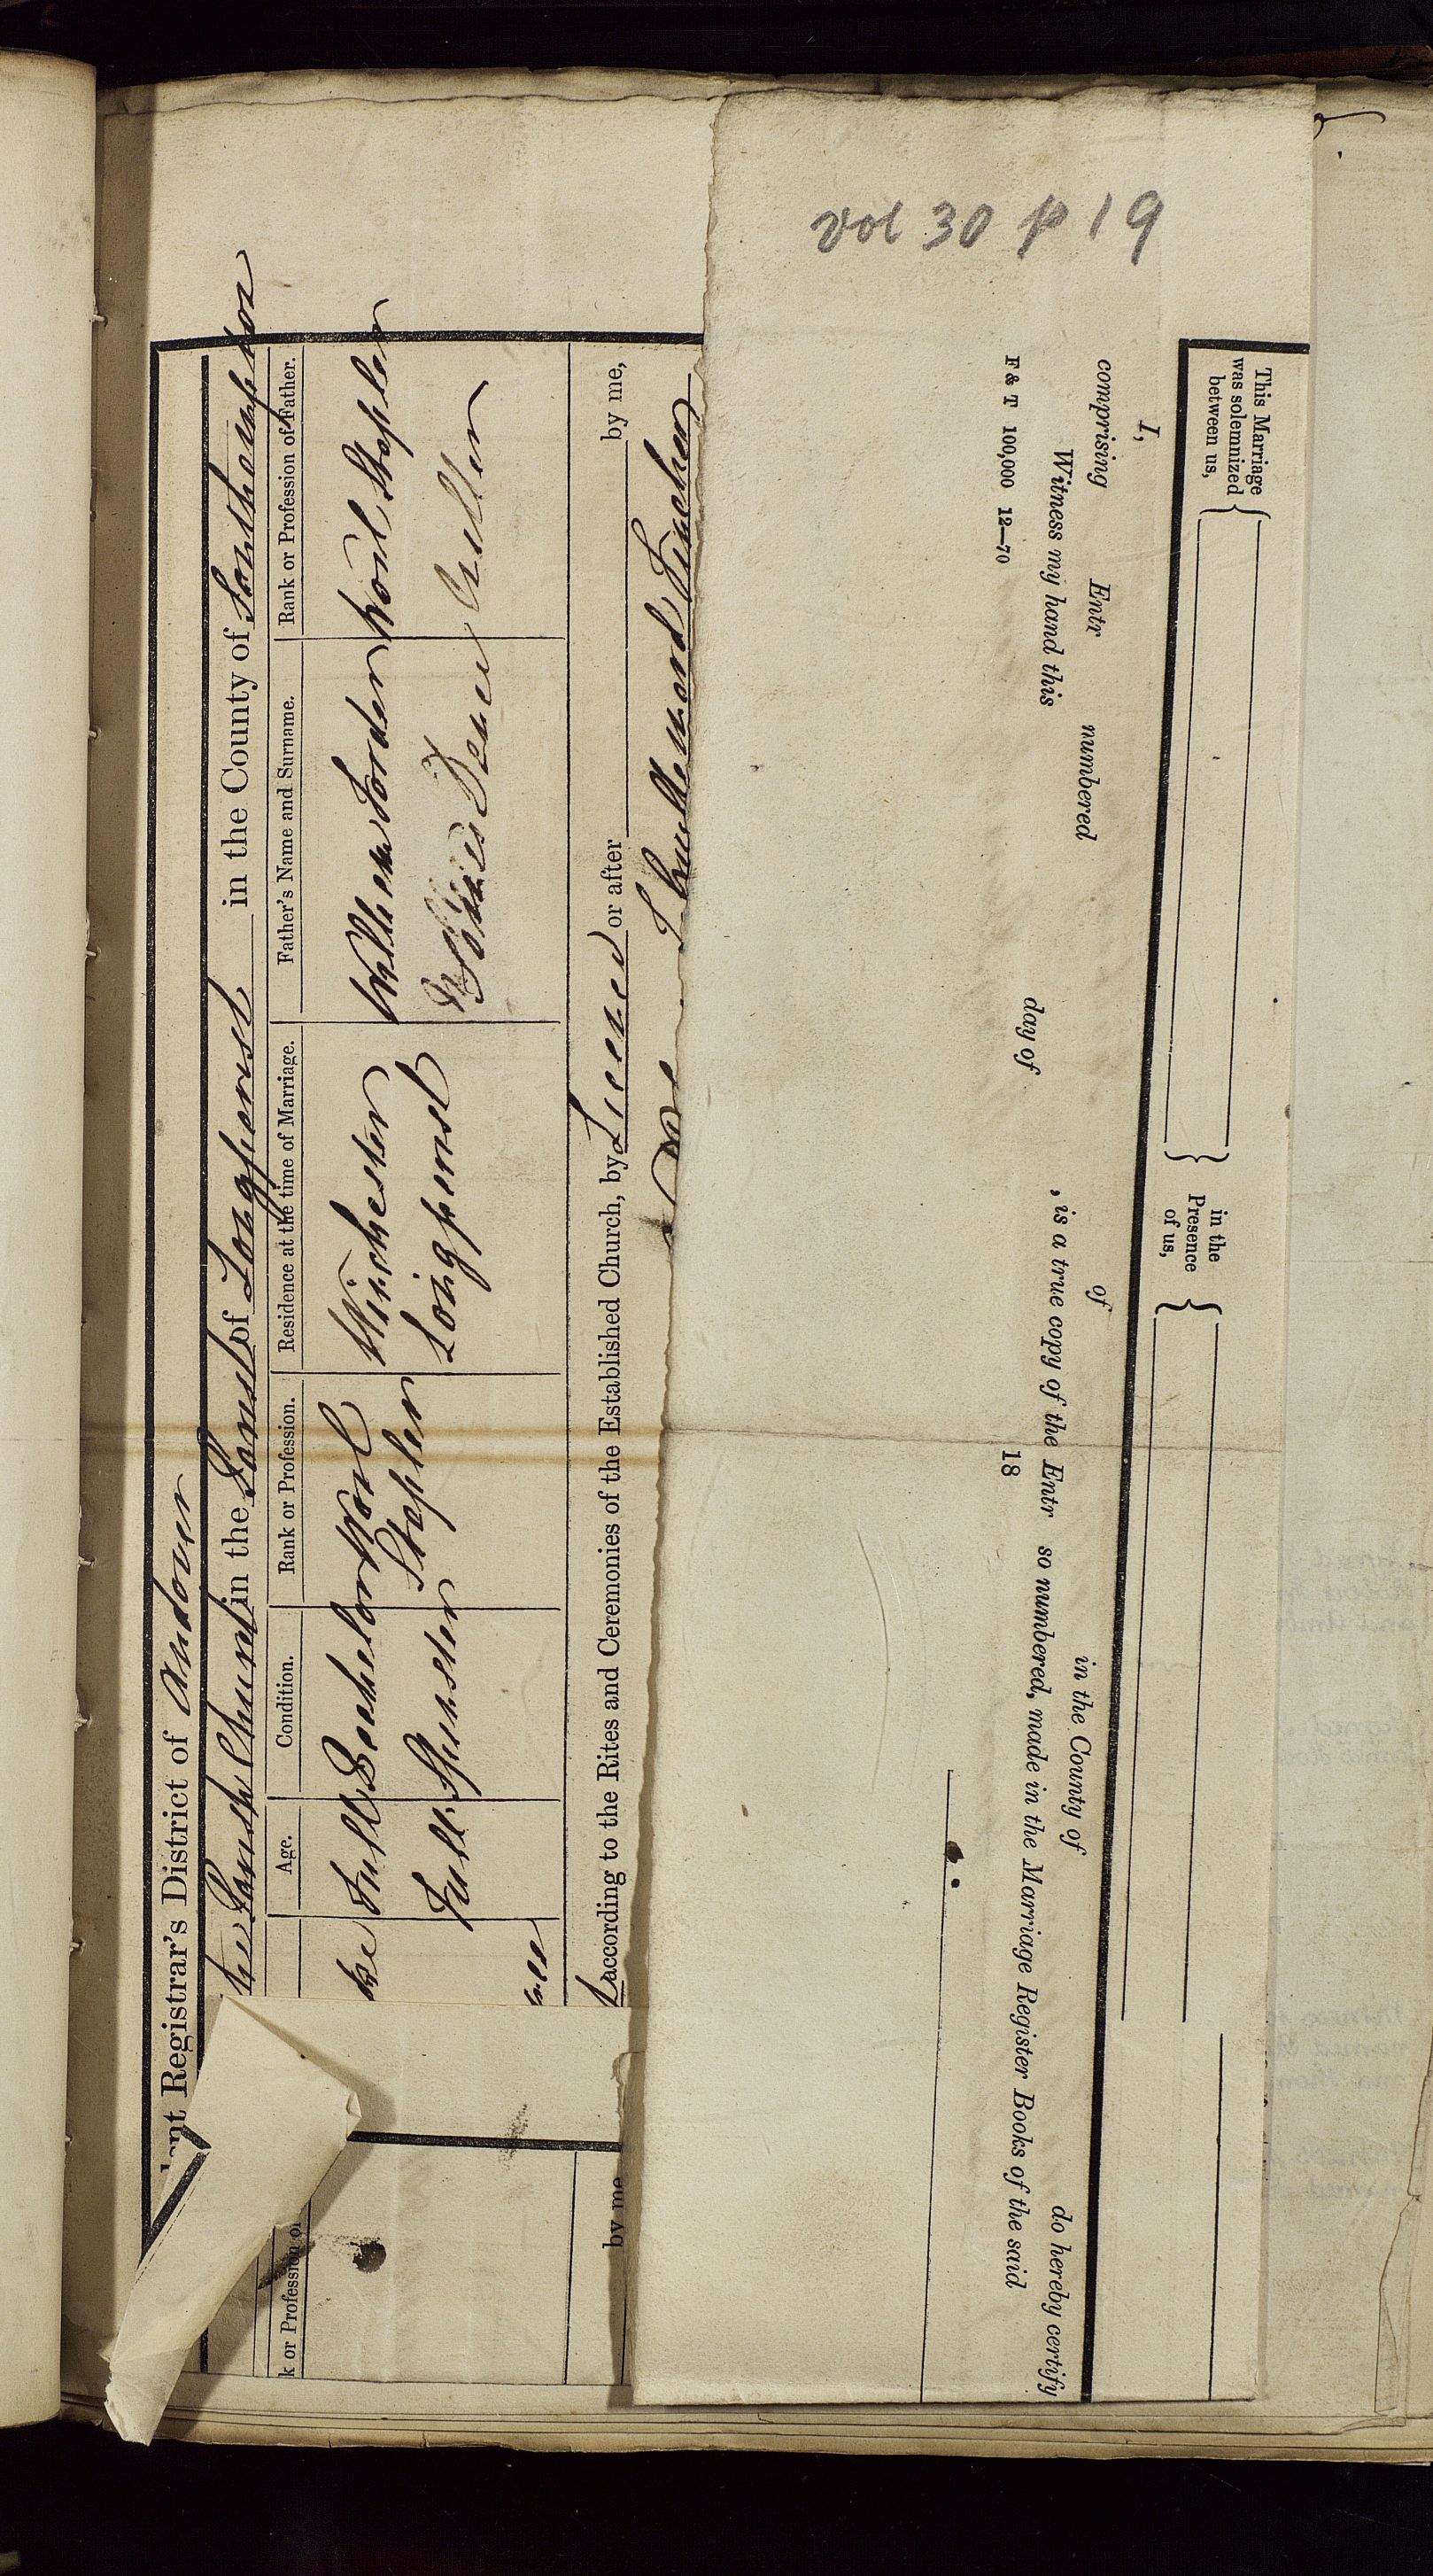 vol 30 p 19
Registrar's District of Andover
the Parish Church in the Parish of Longparish in the County of Southampton
Age. Condition. Rank or Profession. Residence at the time of Marriage. Father's Name and Surname. Rank or Profession of Father.
Full Bachelor Wool Stapler Winchester William Forder Wool Stapler
Full Spinster Longparish
according to the Rites and Ceremonies of the Established Church, by Licence or after by me,
k or Profession of
by me
This Marriage
was solemnized
between us,
in the
Presence
of us,
I, of in the County of do hereby certify
comprising Entr numbered , is a true copy of the Entr so numbered, made in the Marriage Register Books of the said
Witness my hand this day of 18
F & T 100,000 12—70